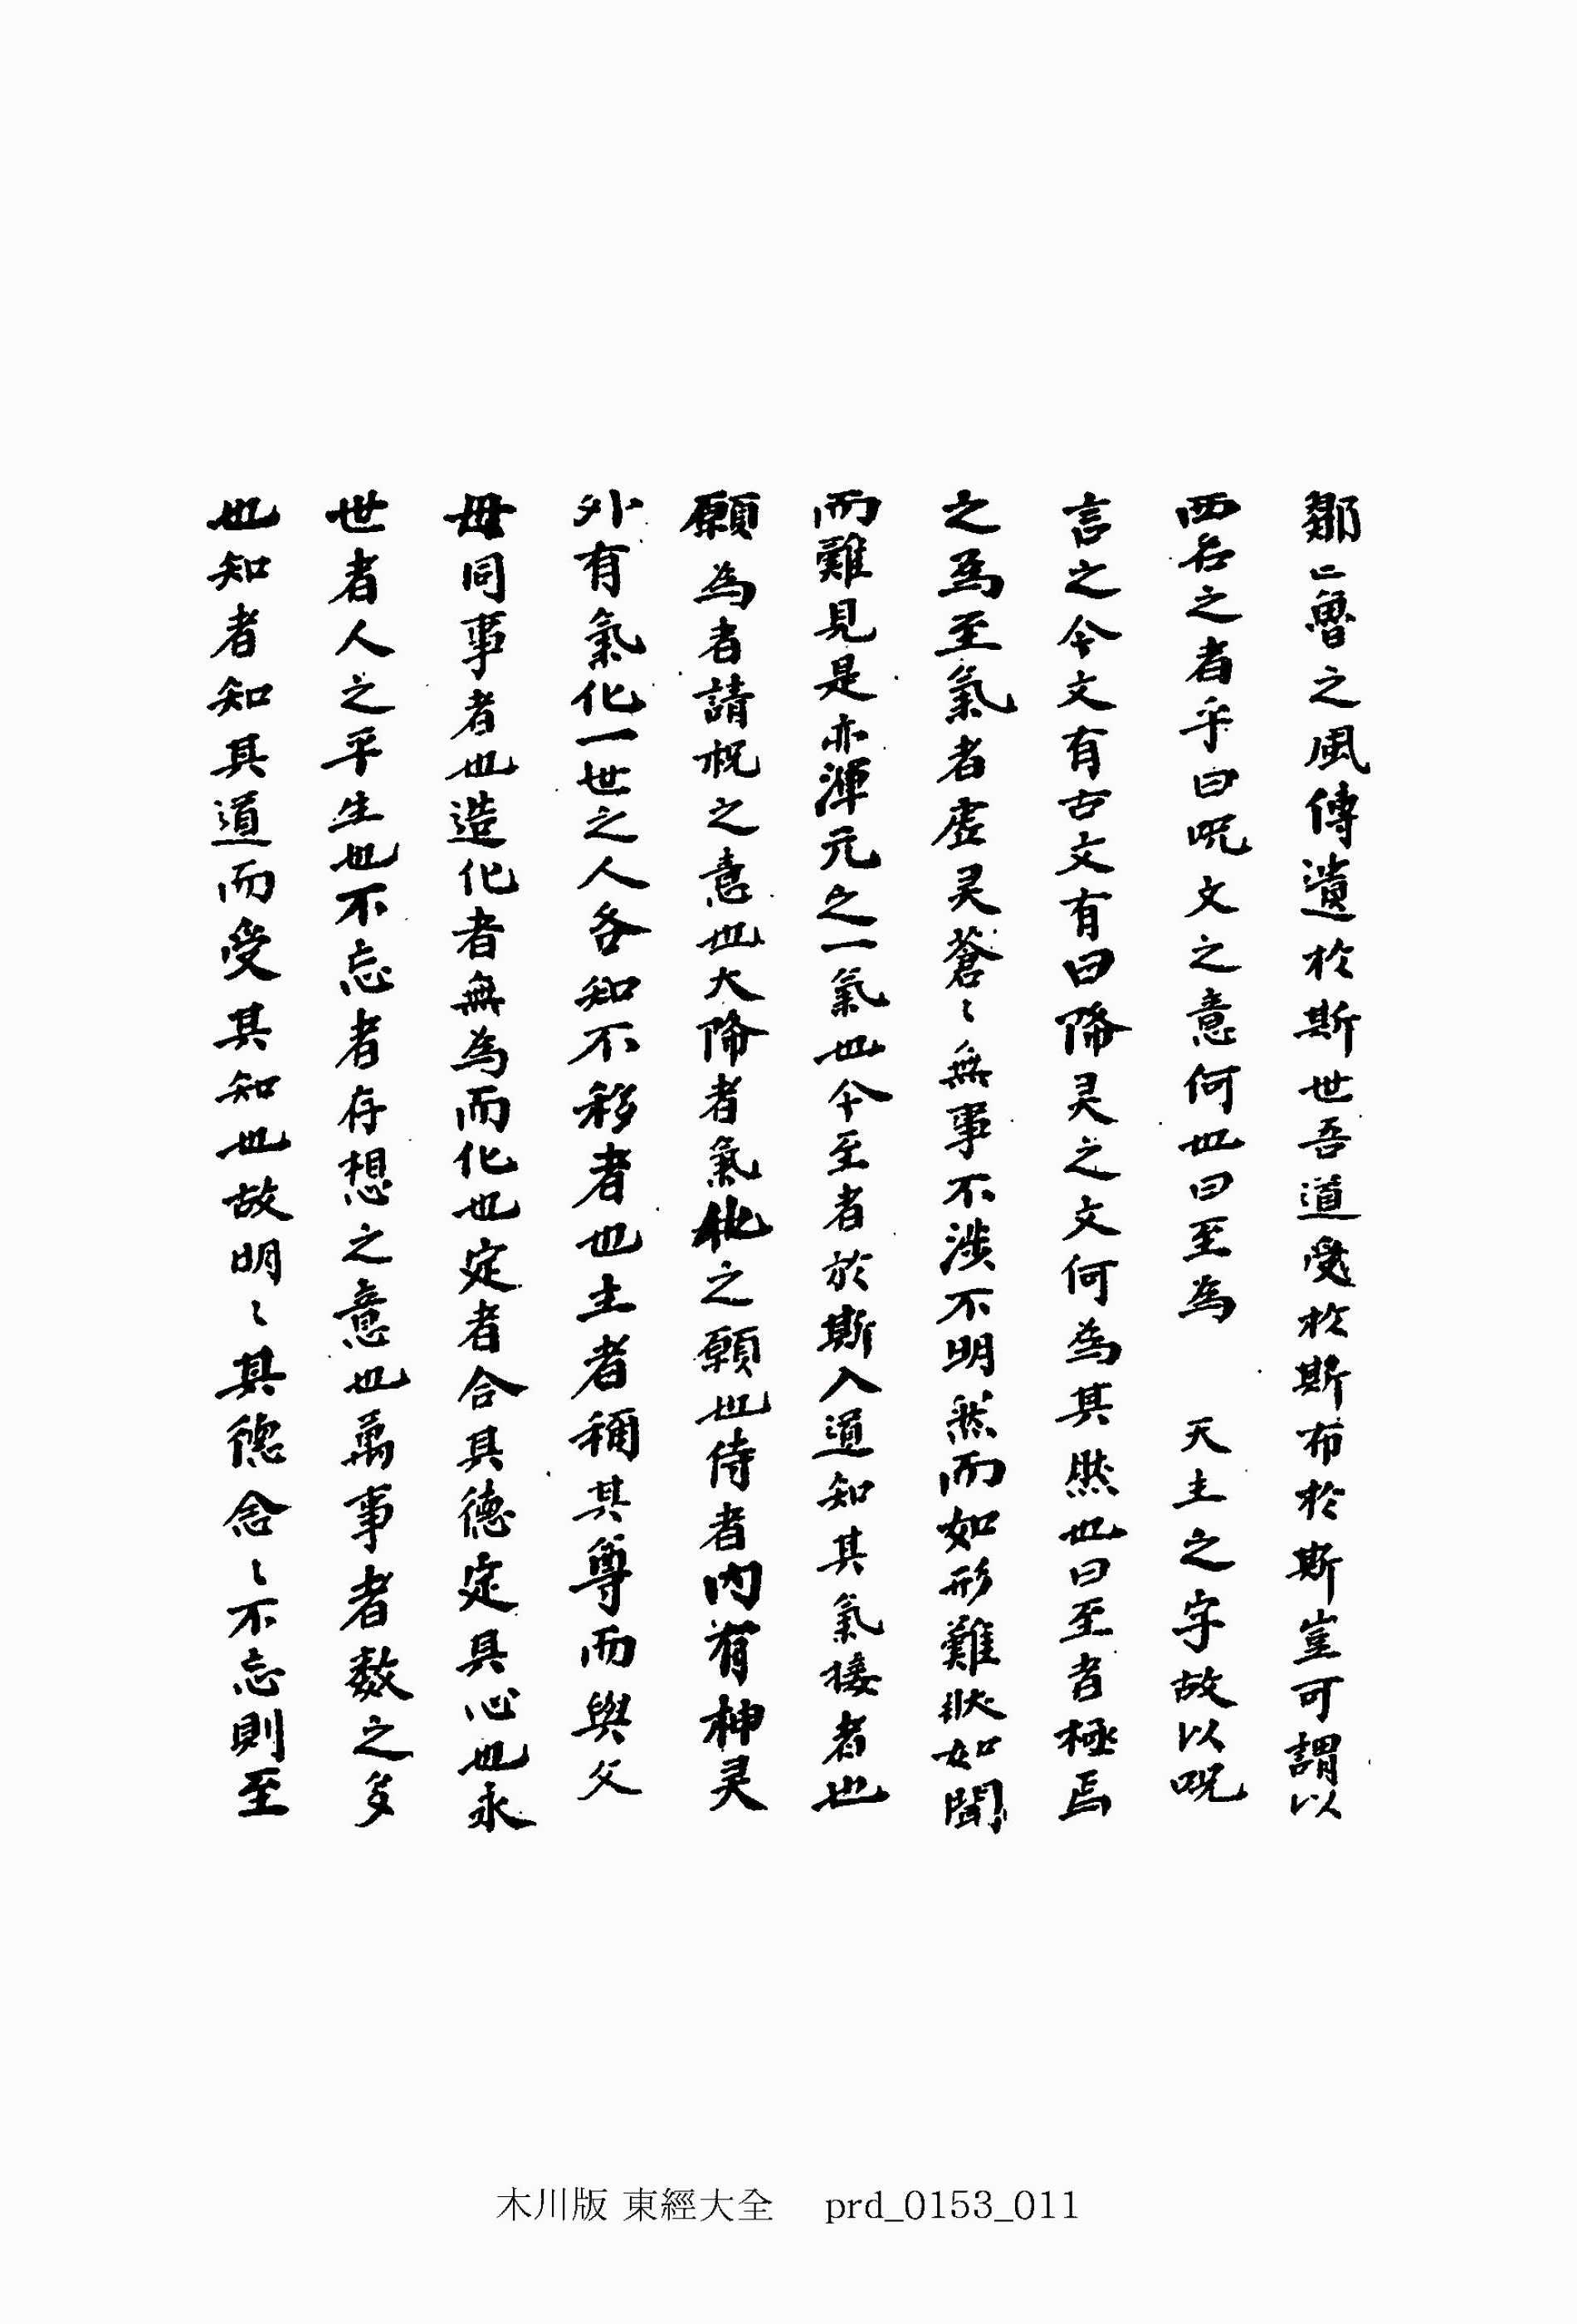 鄒〻魯之風傳遺於斯世吾道受於斯布於斯豈可謂以
西名之者乎曰呪文之意何也曰至為 天主之字故以呪
言之今文有古文有曰降灵之文何為其然也曰至者極焉
之為至氣者虛灵蒼〻無事不涉不明然而如形難狀如聞
而難見是亦渾元之一氣也今至者於斯入道知其氣接者也
願為者請祝之意也大降者氣化之願也侍者內有神灵
外有氣化一世之人各知不移者也主者稱其尊而與父
母同事者也造化者無為而化也定者合其德定其心也永
世者人之平生也不忘者存想之意也萬事者数之多
也知者知其道而受其知也故明〻其德念〻不忘則至
木川版 東經大全 prd_0153_011